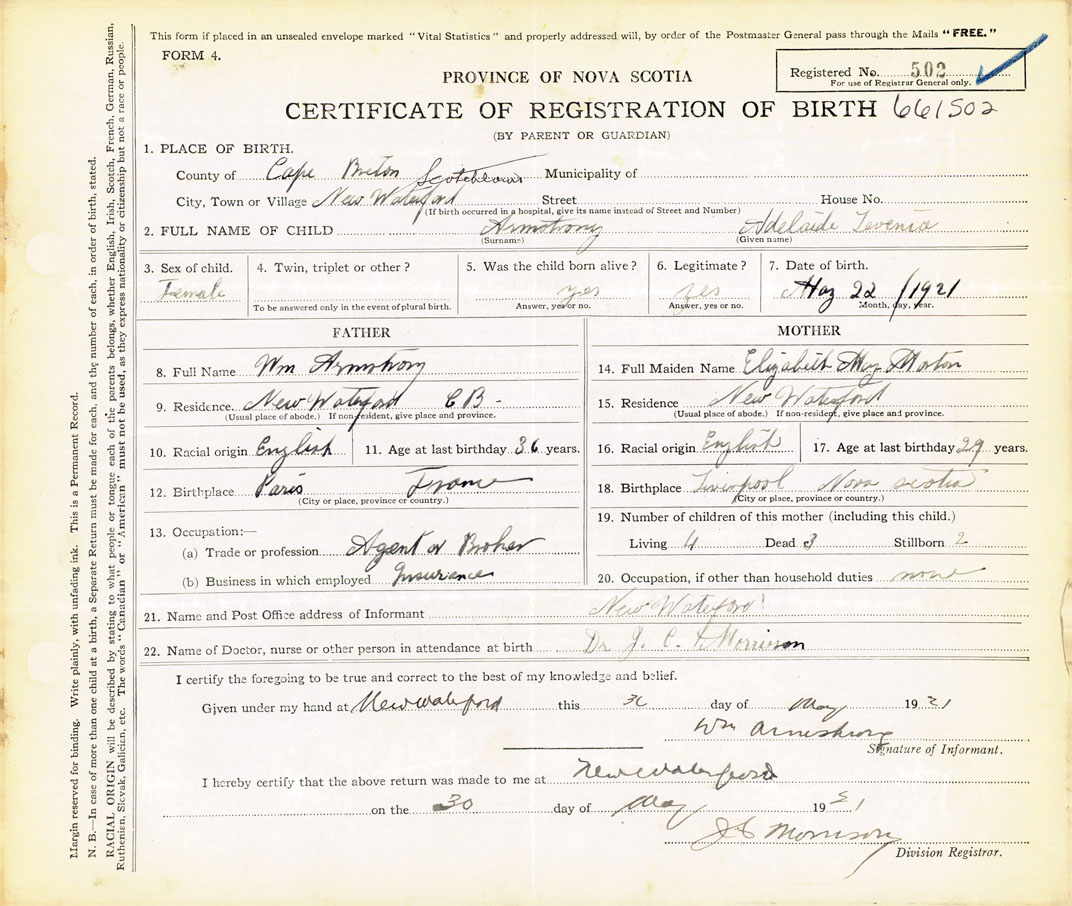 This form if placed in an unsealed envelope marked "Vital Statistics" and properly addressed will, by order of the Postmaster General pass through the Mails "FREE."
FORM 4.
Registered No. 502
For use of Registrar General only.
PROVINCE OF NOVA SCOTIA
CERTIFICATE OF REGISTRATION OF BIRTH 661502
(BY PARENT OR GUARDIAN)
1. PLACE OF BIRTH.
County of Cape Breton Scotchtown Municipality of
City, Town or Village New Waterford Street House No.
(If birth occurred in a hospital, give its name instead of Street and Number)
2. FULL NAME OF CHILD Armstrong Adelaide Tevenia
(Surname) (Given name)
3. Sex of child. 4. Twin, triplet or other? 5. Was the child born alive? 6. Legitimate? 7. Date of birth.
Female yes yes May 22 / 1921
To be answered only in the event of plural birth. Answer, yes or no. Answer, yes or no. Month, day, year.
FATHER
8. Full Name Wm Armstrong
9. Residence. New Waterford C B -
(Usual place of abode.) If non-resident, give place and province.
10. Racial origin English 11. Age at last birthday 36 years.
12. Birthplace Paris France
(City or place, province or country.)
13. Occupation:—
(a) Trade or profession Agent or Broker
(b) Business in which employed Insurance
MOTHER
14. Full Maiden Name Elizabeth May Morton
15. Residence New Waterford
(Usual place of abode.) If non-resident, give place and province.
16. Racial origin English 17. Age at last birthday 29 years.
18. Birthplace Liverpool Nova scotia
(City or place, province or country.)
19. Number of children of this mother (including this child.)
Living 4 Dead 3 Stillborn 2
20. Occupation, if other than household duties none
21. Name and Post Office address of Informant New Waterford
22. Name of Doctor, nurse or other person in attendance at birth Dr J. C. Morrison
I certify the foregoing to be true and correct to the best of my knowledge and belief.
Given under my hand at New Waterford this 30 day of May 1921
Wm Armstrong
Signature of Informant.
I hereby certify that the above return was made to me at New Waterford
on the 30 day of May 1921
J C Morrison
Division Registrar.
Margin reserved for binding. Write plainly, with unfading ink. This is a Permanent Record.
N. B.—In case of more than one child at a birth, a Separate Return must be made for each, and the number of each, in order of birth, stated.
RACIAL ORIGIN will be described by stating to what people or tongue each of the parents belongs, whether English, Irish, Scotch, French, German, Russian,
Ruthenian, Slovak, Galician, etc. The words "Canadian" or "American" must not be used, as they express nationality or citizenship but not a race or people.